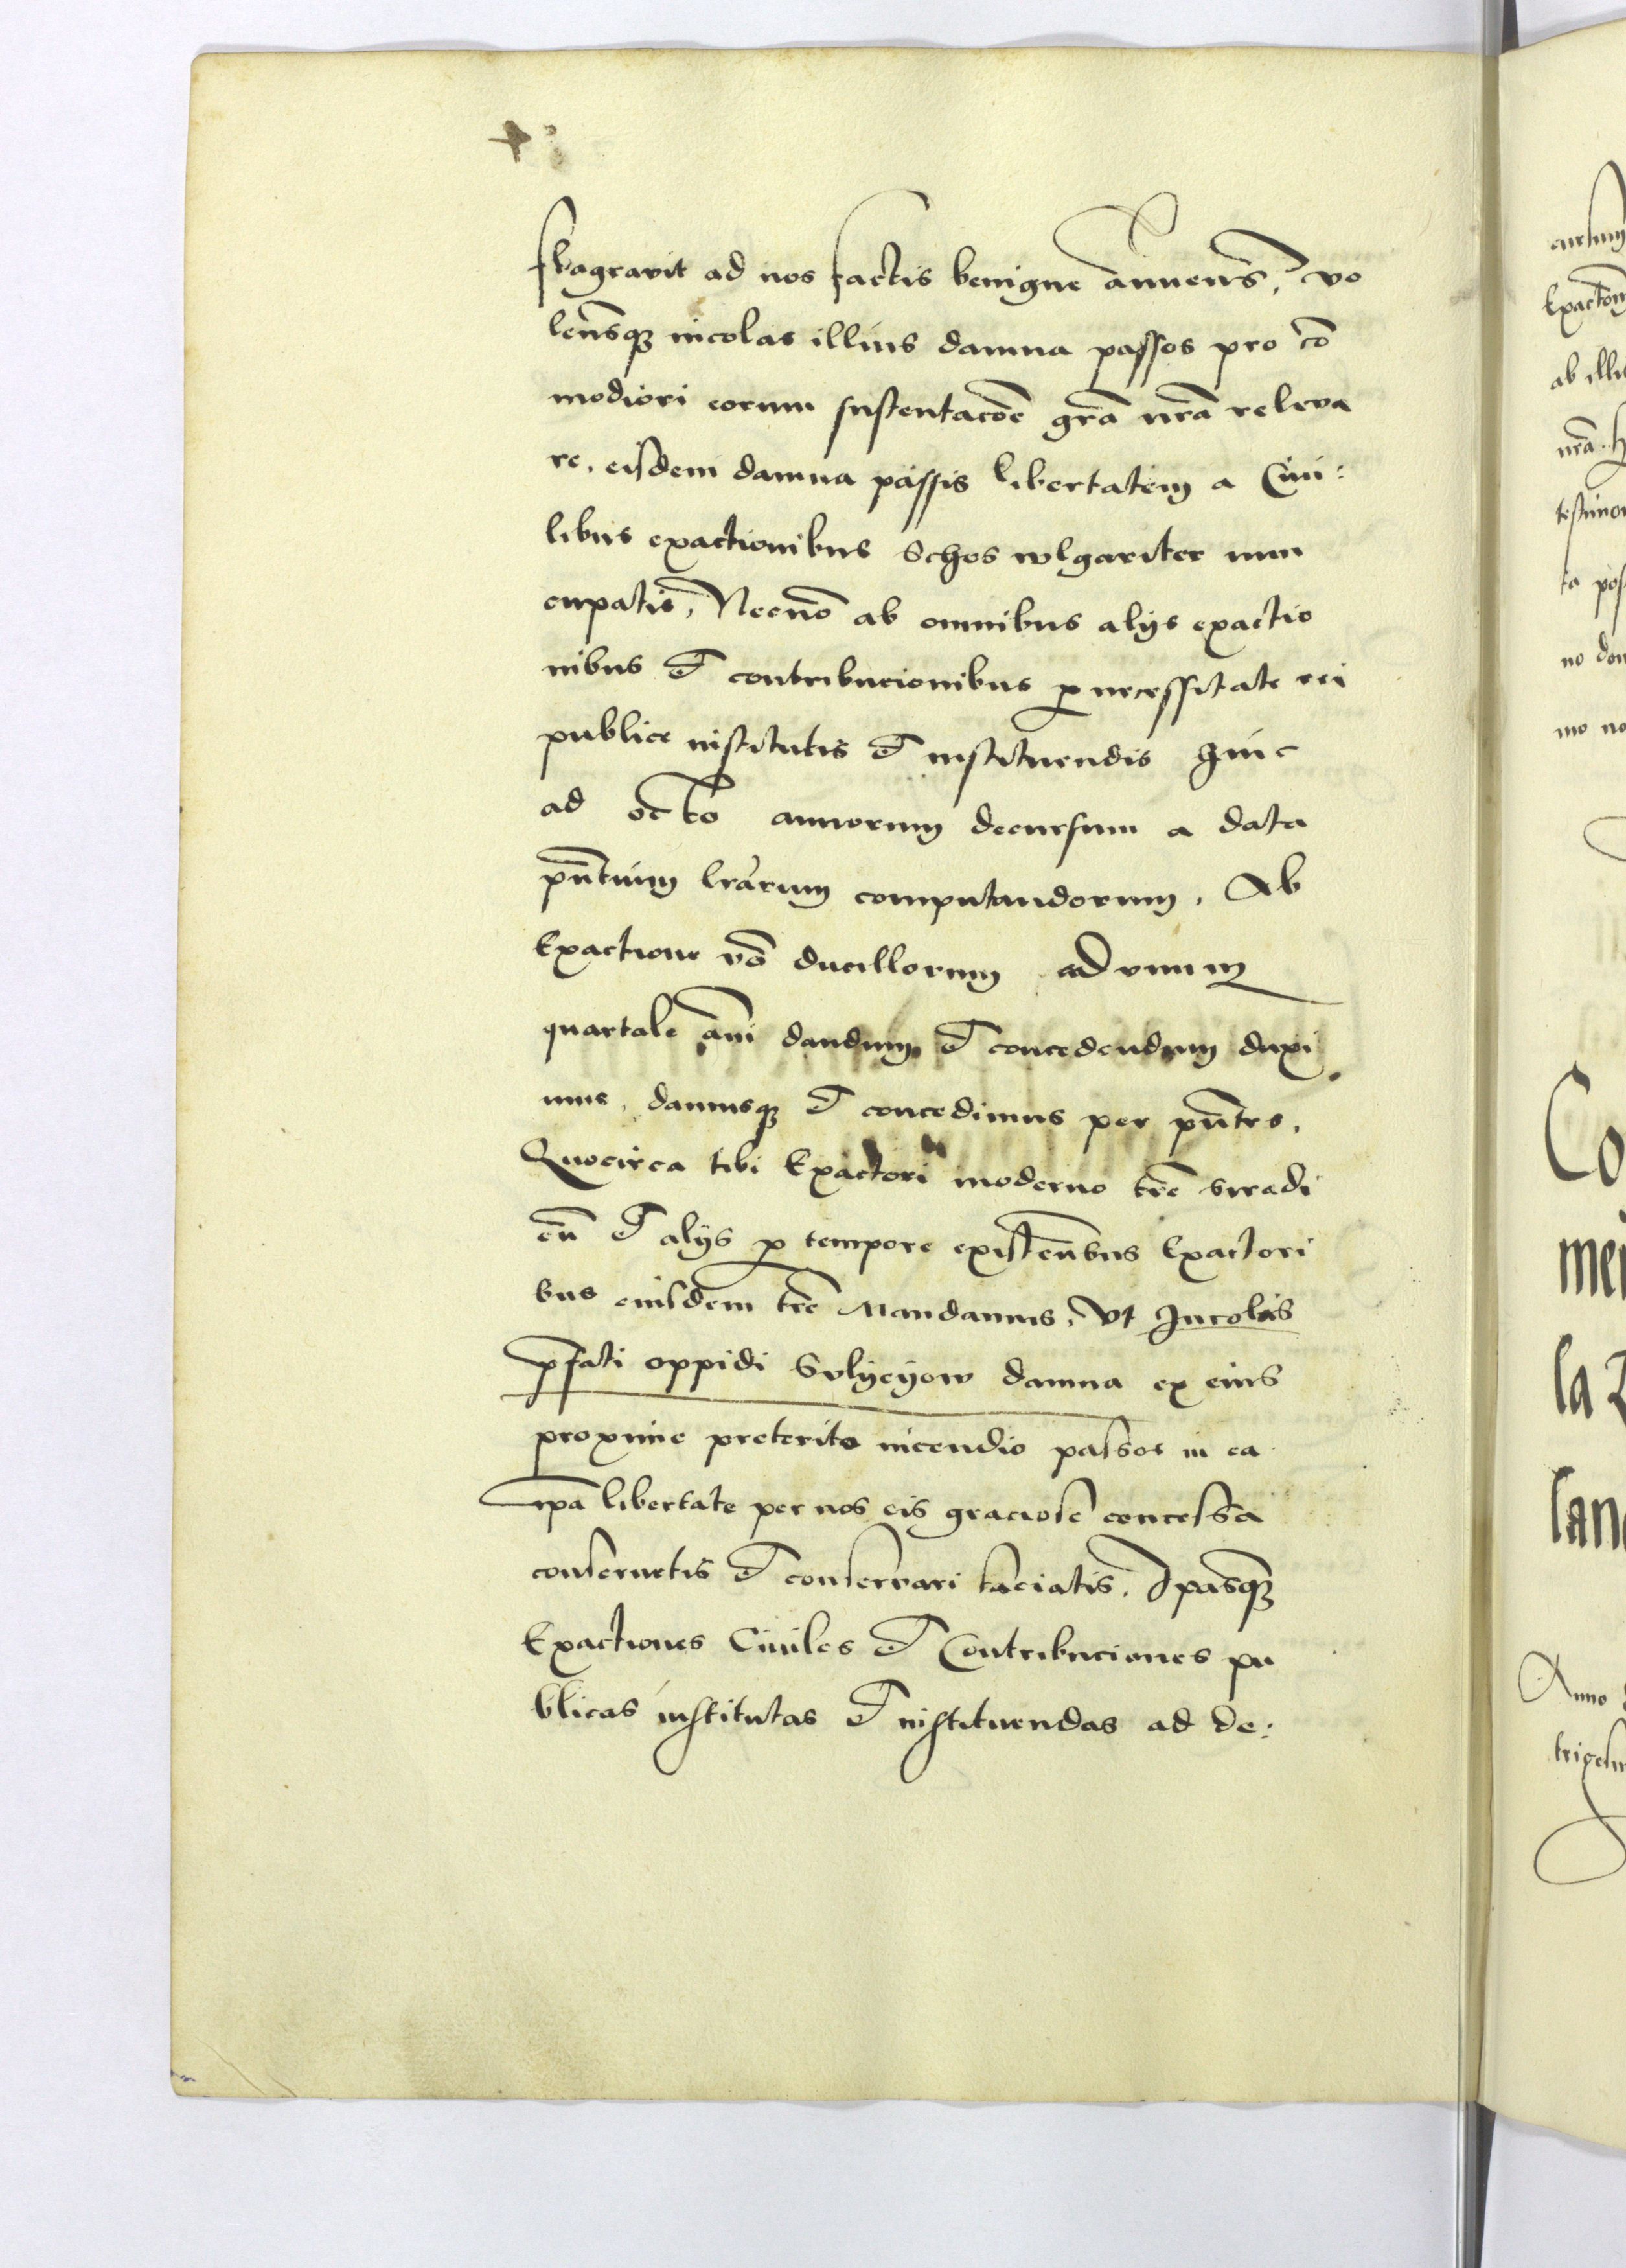 fkagravit ad nos factis benigne annuens, vo
lensq̃ȝ incolas illius damna passos pro cõ
modiori eorum sustentacõe grã nrã releva
re, eisdem damna passis libertatem a Ciui:
libus exactionibus Schos wlgariter nun
cupatis, Necnõ ab omnibus alys exactio
nibus et contribucionibus p necessitate rei
publice institutis et instituendis Hinc
ad octo annorum decursum a data
pñtium lrarum computandorum, Ab
Exactione võ ducillorum ad vnum
quartale añi dandum et concedendum duxi
mus, damusqȝ et concedimus per pñtes,
Quocirca tibi Exactori moderno trẽ Siradi
eñ et alys p tempore existeñbus Exactori
bus eiusdem trẽ Mandamus, vt Incolas
pfati oppidi Svlyeyow damna ex eius
proxime preterito incendio passos in ea
ipa libertate per nos eis graciose concessa
conseruetis et conseruari faciatis, Ipasqȝ
Exactiones Ciuiles et Contribuciones pu
blicas institutas et instituendas ad de:
cursum
Exaction
ab illi
nrã. H
testimon
ta pos
no dom
mo no
Co
mei
la
san
Anno
trigesi